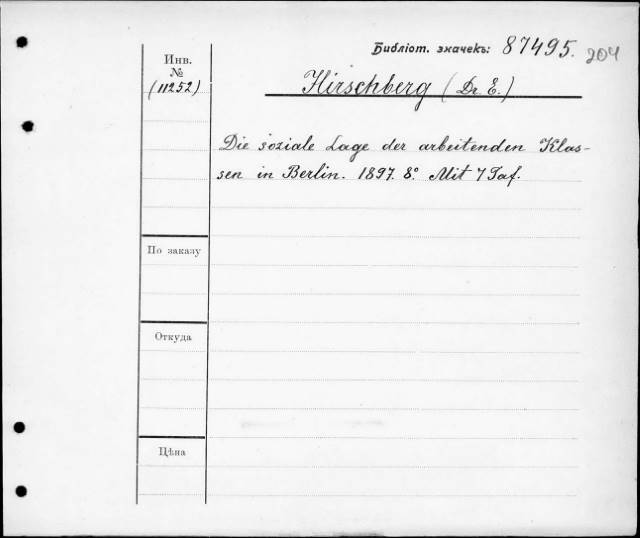 Библіот. значекъ: 87495. 204
Инв.
№
(11252)
Hirschberg (Dr. E.)
Die soziale Lage der arbeitenden Klas-
sen in Berlin. 1897. 8º Mit 7 Taf.
По заказу
Откуда
Цѣна